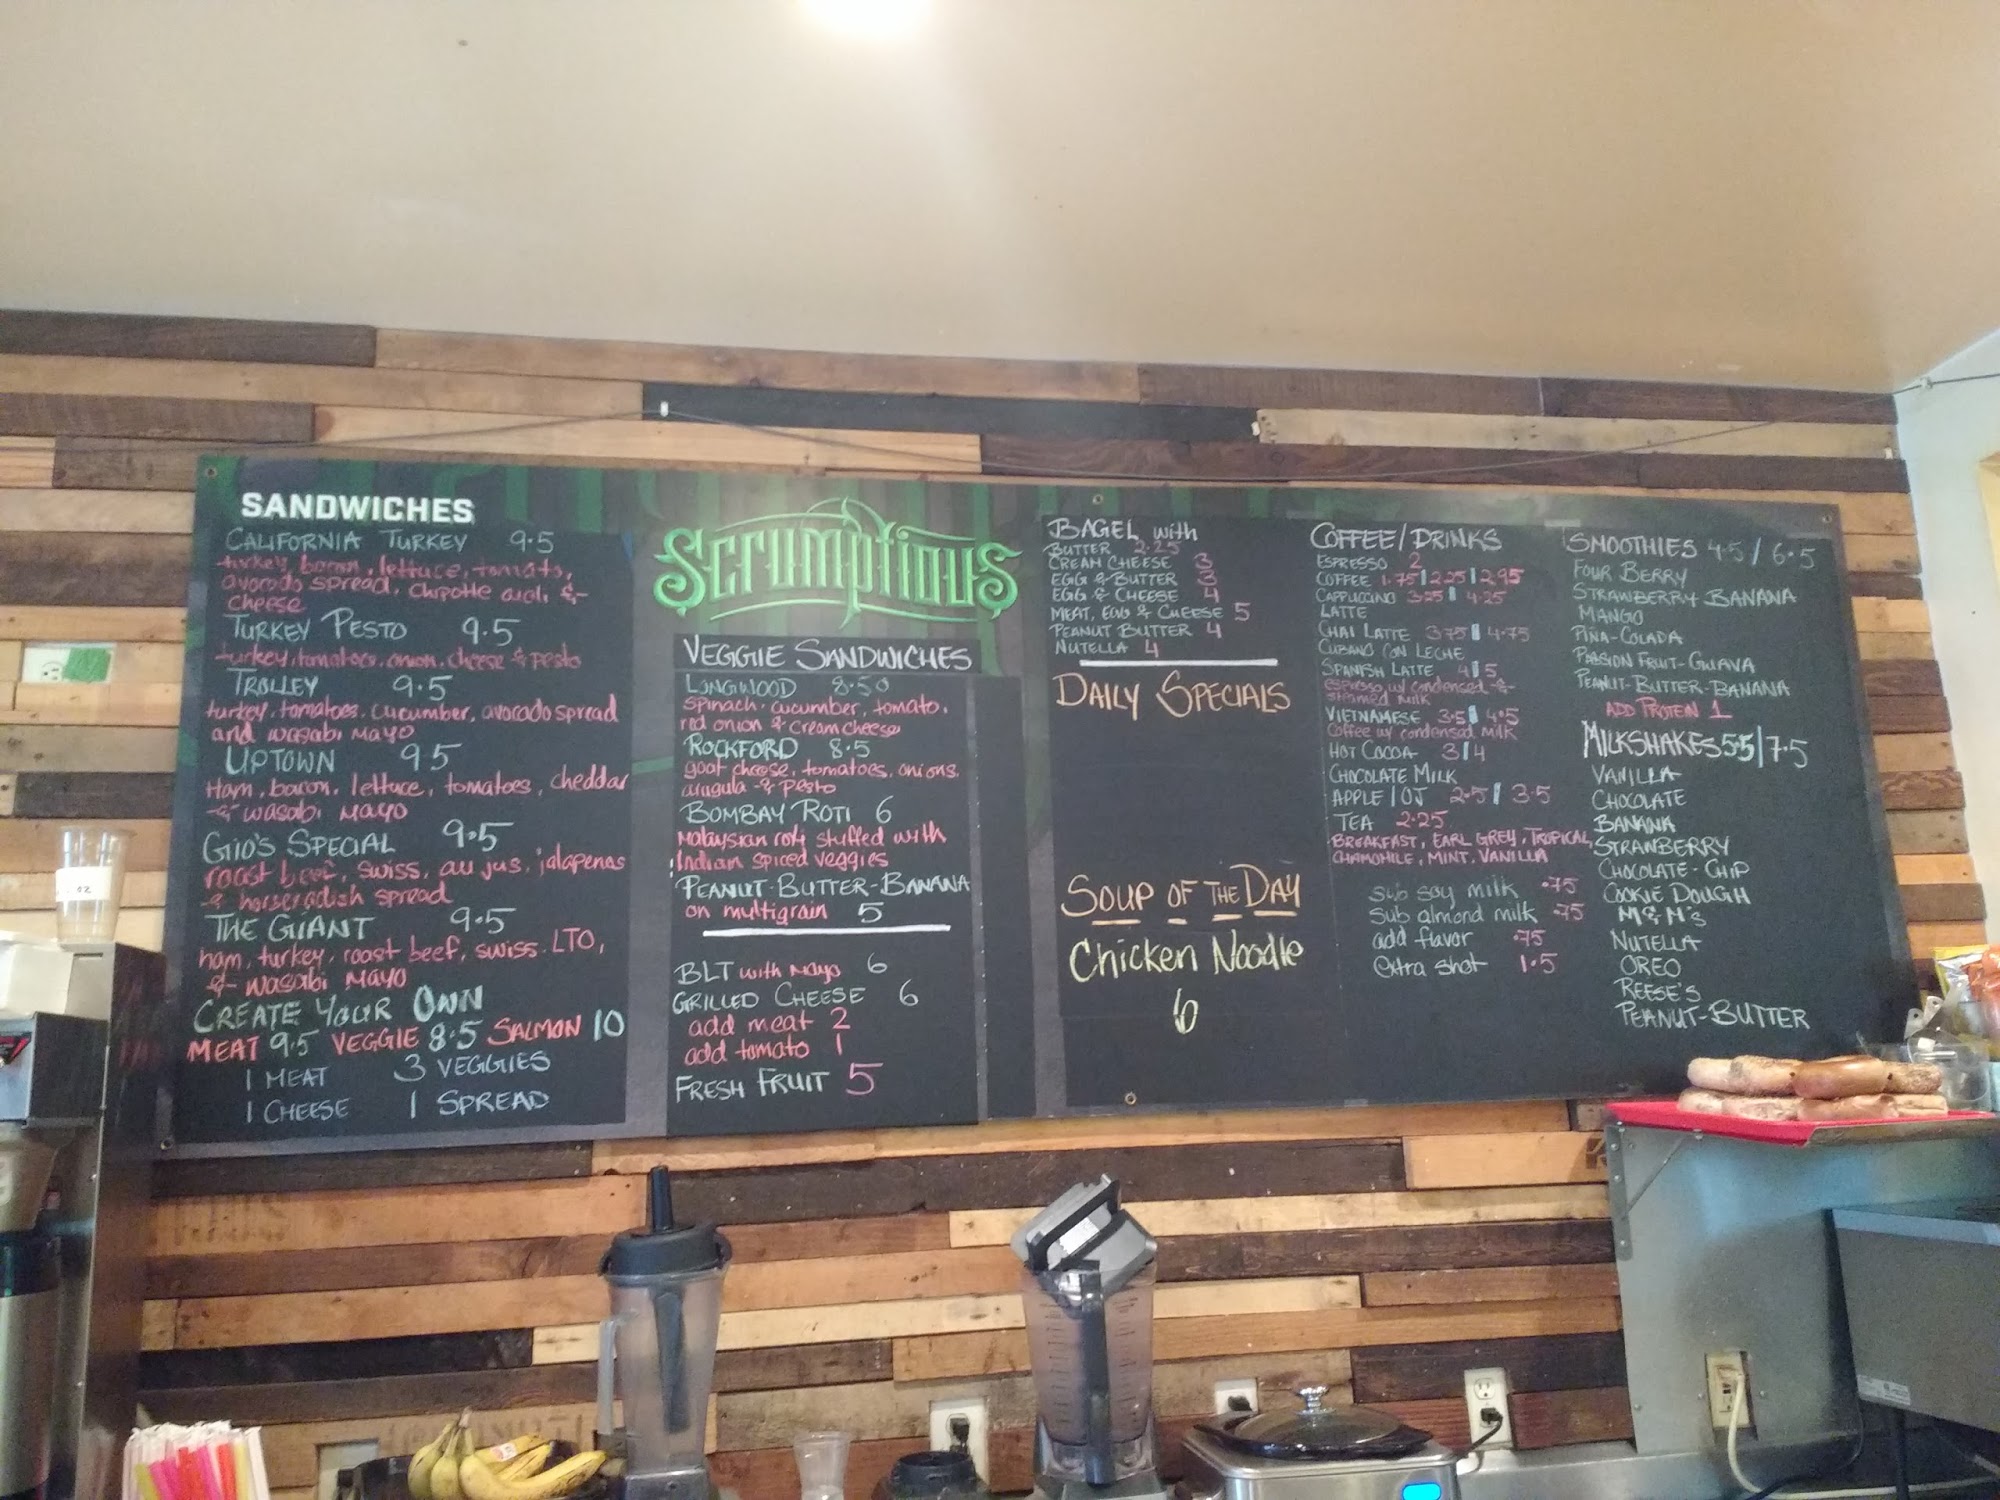 SANDWICHES
CALIFORNIA TURKEY 9.5
turkey, bacon, lettuce, tomato,
avocado spread, chipotle aioli &
cheese
TURKEY PESTO 9.5
turkey, tomatoes, onion, cheese & pesto
TROLLEY 9.5
turkey, tomatoes, cucumber, avocado spread
and wasabi mayo
UPTOWN 9.5
Ham, bacon, lettuce, tomatoes, cheddar
& wasabi mayo
GIO'S SPECIAL 9.5
roast beef, swiss, au jus, jalapenos
& horseradish spread
THE GIANT 9.5
ham, turkey, roast beef, swiss, LTO,
& wasabi mayo
CREATE YOUR OWN
MEAT 9.5 VEGGIE 8.5 SALMON 10
1 MEAT 3 VEGGIES
1 CHEESE 1 SPREAD
Scrumptious
VEGGIE SANDWICHES
LONGWOOD 8.50
spinach, cucumber, tomato,
red onion & cream cheese
ROCKFORD 8.5
goat cheese, tomatoes, onions,
arugula & pesto
BOMBAY ROTI 6
Malaysian roti stuffed with
Indian spiced veggies
PEANUT-BUTTER-BANANA
on multigrain 5
BLT with mayo 6
GRILLED CHEESE 6
add meat 2
add tomato 1
FRESH FRUIT 5
BAGEL with
BUTTER 2.25
CREAM CHEESE 3
EGG & BUTTER 3
EGG & CHEESE 4
MEAT, EGG & CHEESE 5
PEANUT BUTTER 4
NUTELLA 4
DAILY SPECIALS
SOUP OF THE DAY
Chicken Noodle
6
COFFEE/DRINKS
ESPRESSO 2
COFFEE 1.75/2.25/2.95
CAPPUCINO 3.25 / 4.25
LATTE
CHAI LATTE 3.75 / 4.75
CUBANO CON LECHE
SPANISH LATTE 4/5
espresso w/ condensed &
steamed milk
VIETNAMESE 3.5 / 4.5
Coffee w/ condensed milk
HOT COCOA 3/4
CHOCOLATE MILK
APPLE / OJ 2.5 / 3.5
TEA 2.25
BREAKFAST, EARL GREY, TROPICAL,
CHAMOMILE, MINT, VANILLA
sub soy milk .75
sub almond milk .75
add flavor .75
extra shot 1.5
SMOOTHIES 4.5 / 6.5
FOUR BERRY
STRAWBERRY BANANA
MANGO
PIÑA-COLADA
PASSION FRUIT-GUAVA
PEANUT-BUTTER-BANANA
ADD PROTEIN 1
MILKSHAKES 5.5/7.5
VANILLA
CHOCOLATE
BANANA
STRAWBERRY
CHOCOLATE-CHIP
COOKIE DOUGH
M&M'S
NUTELLA
OREO
REESE'S
PEANUT-BUTTER